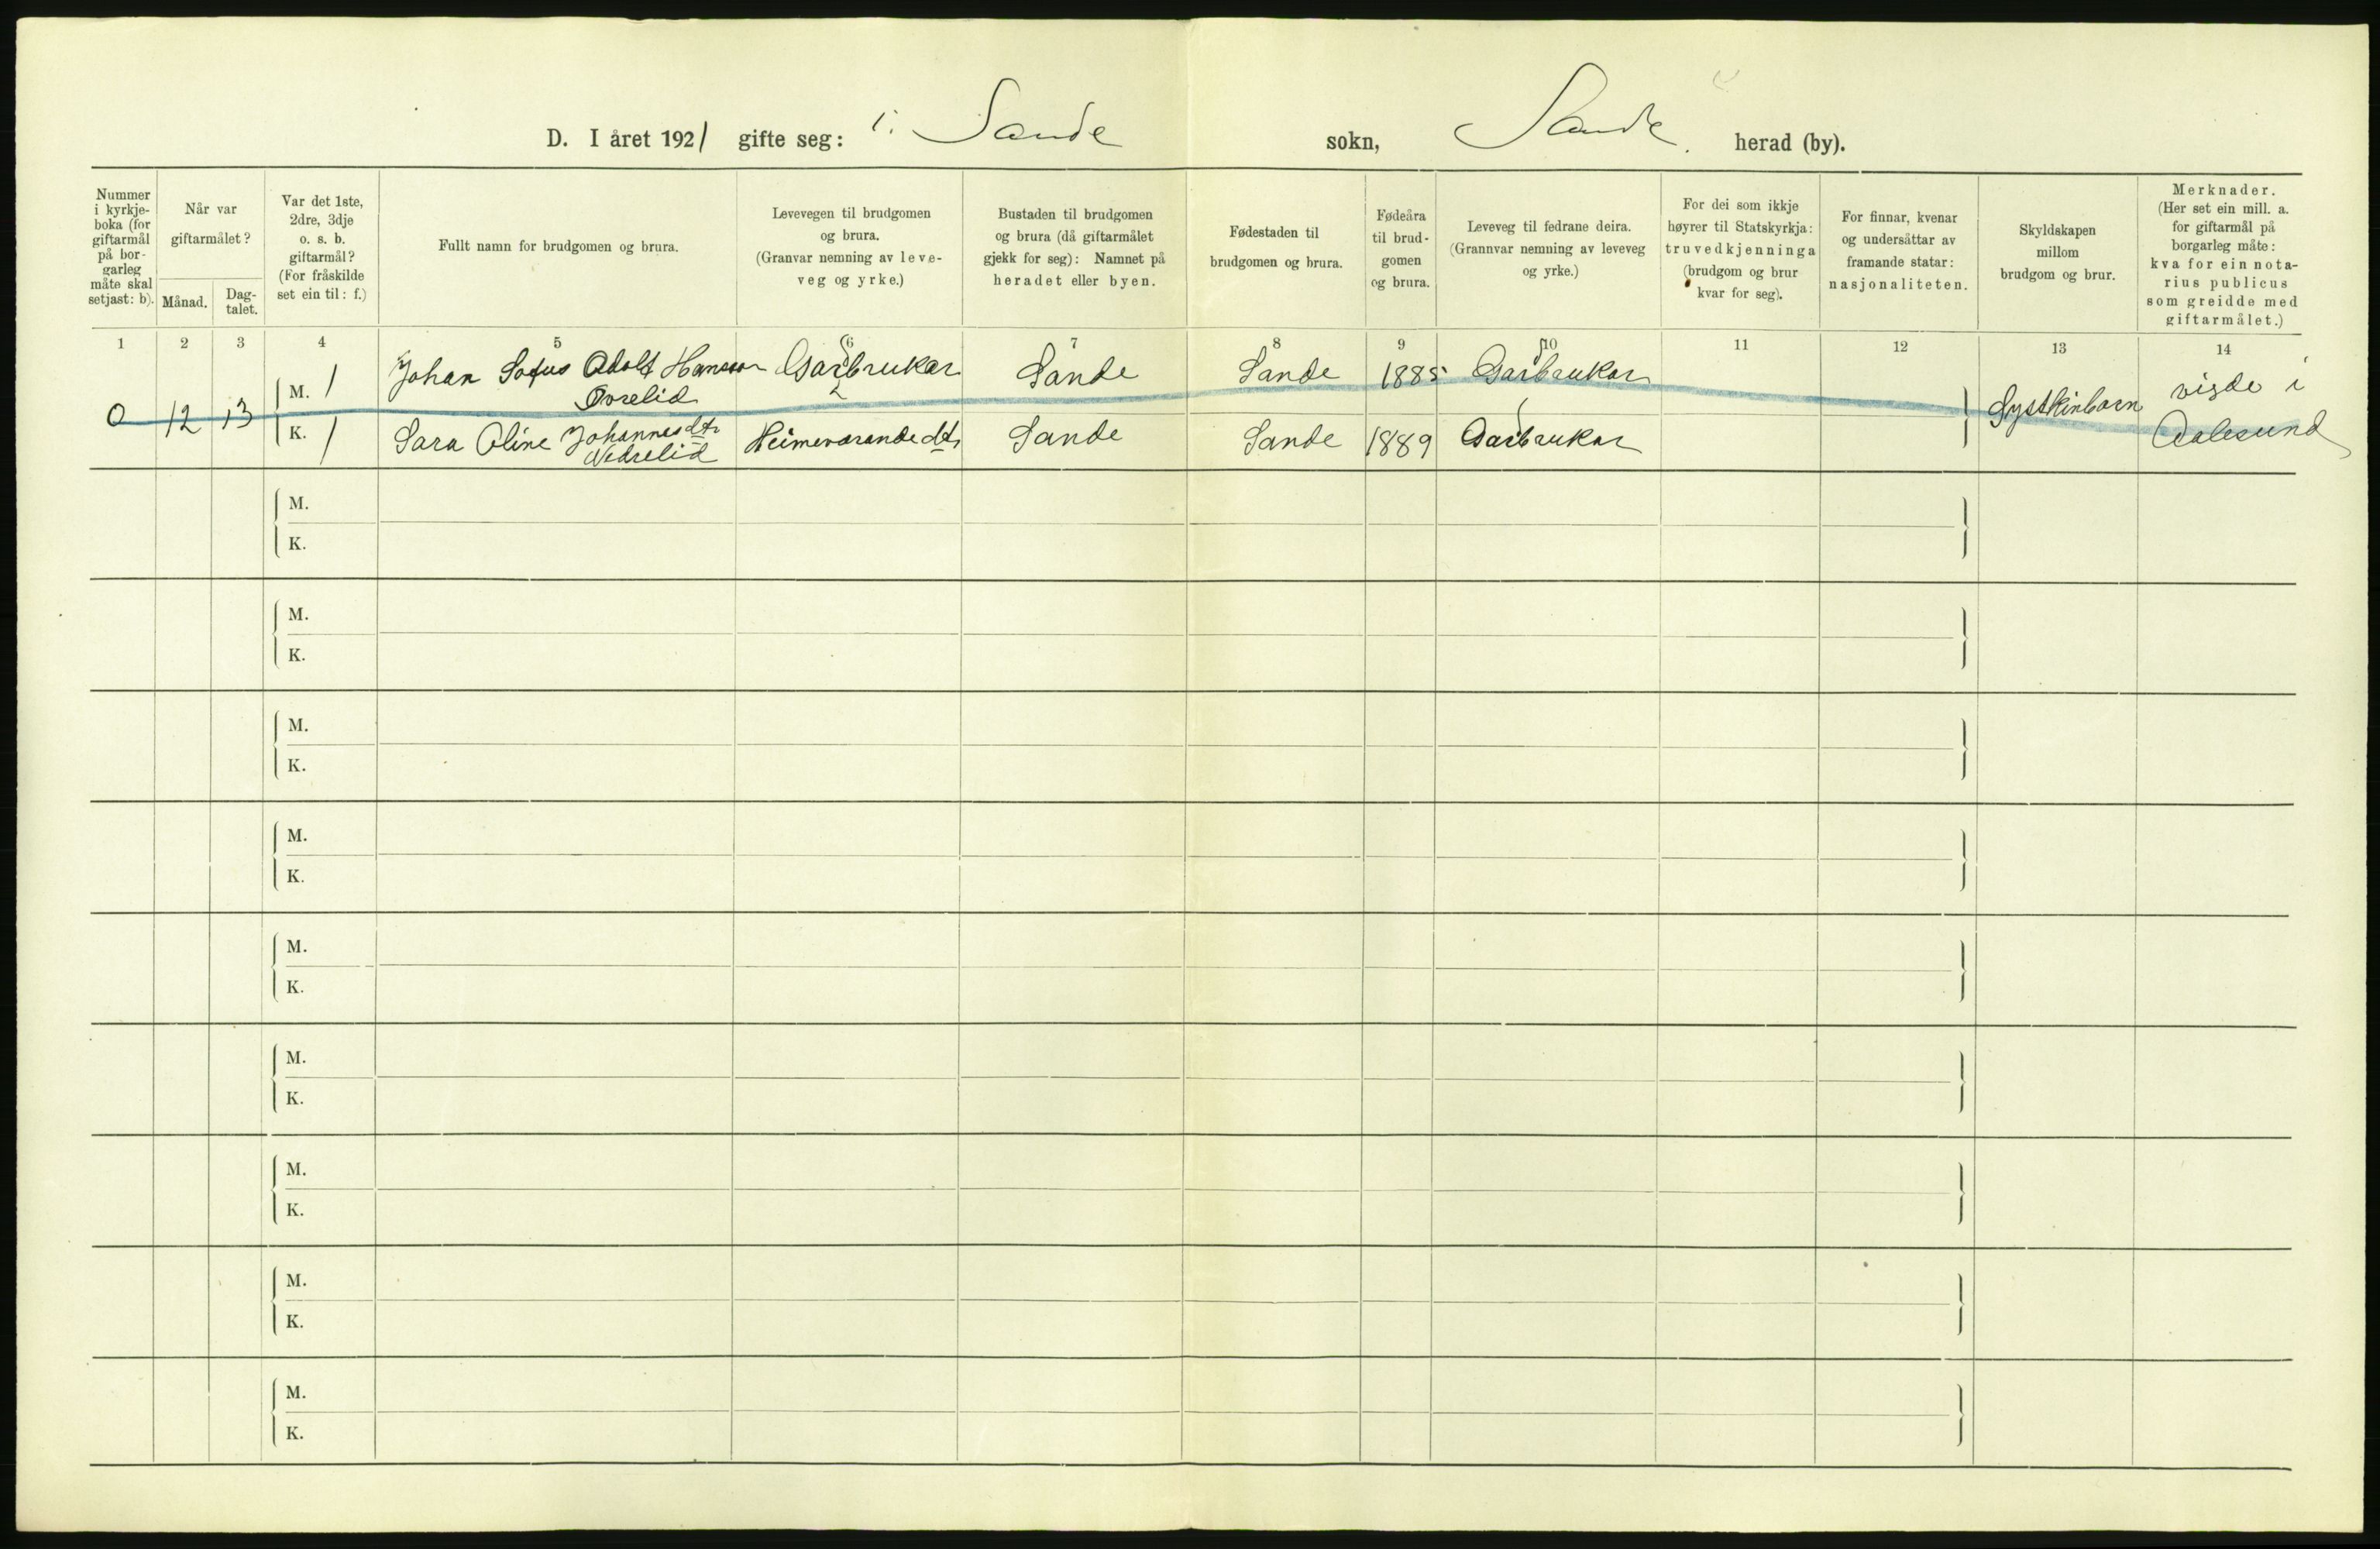 D. I året 1921 gifte seg: i. Sande sokn, Sande. herad (by).
Nummer
i kyrkje-
boka (for
giftarmål
på bor-
garleg
måte skal
setjast: b).
Når var
giftarmålet?
Månad.
Dag-
talet.
Var det 1ste,
2dre, 3dje
o. s. b.
giftarmål?
(For fråskilde
set ein til: f.)
Fullt namn for brudgomen og brura.
Levevegen til brudgomen
og brura.
(Granvar nemning av leve-
veg og yrke.)
Bustaden til brudgomen
og brura (då giftarmålet
gjekk for seg): Namnet på
heradet eller byen.
Fødestaden til
brudgomen og brura.
Fødeåra
til brud-
gomen
og brura.
Leveveg til fedrane deira.
(Grannvar nemning av leveveg
og yrke.)
For dei som ikkje
høyrer til Statskyrkja:
truvedkjenninga
(brudgom og brur
kvar for seg).
For finnar, kvenar
og undersåttar av
framande statar:
nasjonaliteten.
Skyldskapen
millom
brudgom og brur.
Merknader.
(Her set ein mill. a.
for giftarmål på
borgarleg måte:
kva for ein nota-
rius publicus
som greidde med
giftarmålet.)
1 2 3 4 5 6 7 8 9 10 11 12 13 14
0 12 13
M. 1 Johan Sofus Adolf Hansson
Øvrelid
Gardbrukar Sande Sande 1885 Gardbrukar
K. 1 Sara Oline Johannesdtr
Nedrelid
Heimeverande dtr Sande Sande 1889 Gardbrukar
Systkinborn
vigde i
Aalesund
M.
K.
M.
K.
M.
K.
M.
K.
M.
K.
M.
K.
M.
K.
M.
K.
M.
K.